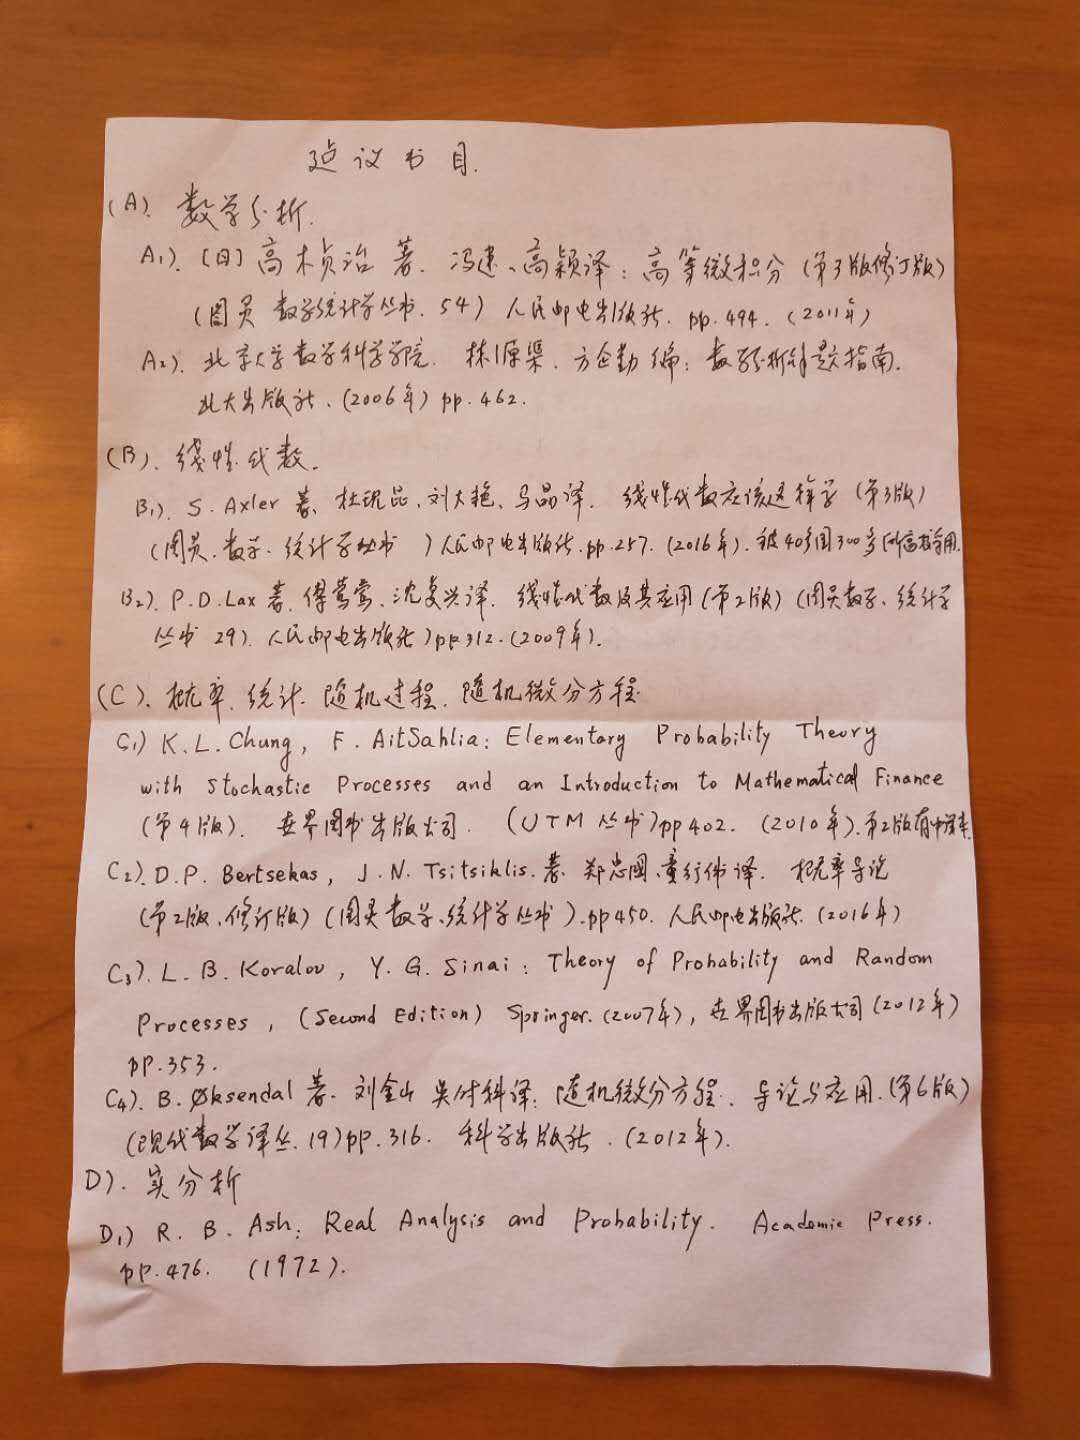 建议书目.
(A). 数学分析.
A₁). (日) 高木贞治 著. 冯速、高颖译: 高等微积分 (第3版修订版)
(图灵 数学统计学丛书. 54) 人民邮电出版社. pp. 494. (2011年)
A₂). 北京大学数学科学学院. 林源渠. 方企勤 编: 数学分析解题指南.
北大出版社. (2006年) pp. 462.
(B). 线性代数.
B₁). S. Axler 著. 杜现昆、刘大艳、马晶译. 线性代数应该这样学 (第3版)
(图灵. 数学. 统计学丛书 ) 人民邮电出版社. pp. 257. (2016年). 被40多国300多所高校采用.
B₂). P. D. Lax 著. 傅莺莺、沈复兴译. 线性代数及其应用 (第2版) (图灵数学、统计学
丛书 29). 人民邮电出版社) pp 312. (2009年).
(C). 概率. 统计. 随机过程. 随机微分方程
C₁) K. L. Chung, F. AitSahlia: Elementary Probability Theory
with Stochastic Processes and an Introduction to Mathematical Finance
(第4版). 世界图书出版公司. (UTM 丛书) pp 402. (2010年). 第2版有中译本.
C₂). D. P. Bertsekas, J. N. Tsitsiklis. 著. 郑忠国、童行伟译. 概率导论
(第2版、修订版) (图灵数学、统计学丛书). pp 450. 人民邮电出版社. (2016年)
C₃). L. B. Koralov, Y. G. Sinai: Theory of Probability and Random
Processes, (Second Edition) Springer. (2007年), 世界图书出版公司 (2012年)
pp. 353.
C₄). B. Øksendal 著. 刘金山 吴付科译: 随机微分方程. 导论与应用. (第6版)
(现代数学译丛. 19) pp. 316. 科学出版社. (2012年).
D). 实分析
D₁) R. B. Ash: Real Analysis and Probability. Academic Press.
pp. 476. (1972).